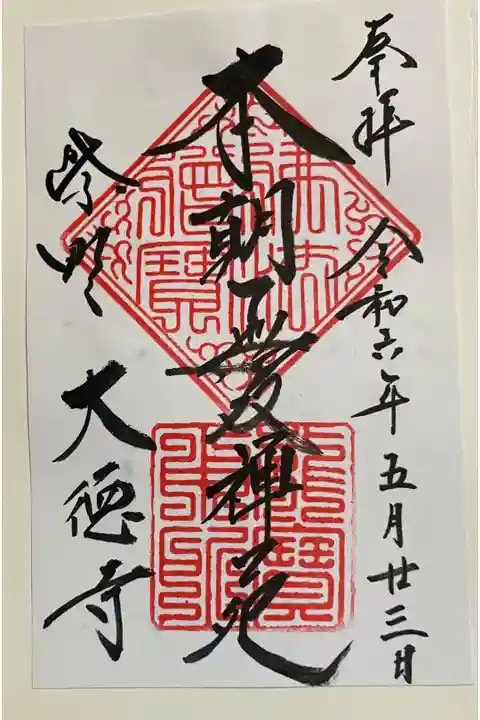 奉拝 令和六年五月廿三日
本朝無双禅苑
紫野 大徳寺
佛法僧寶